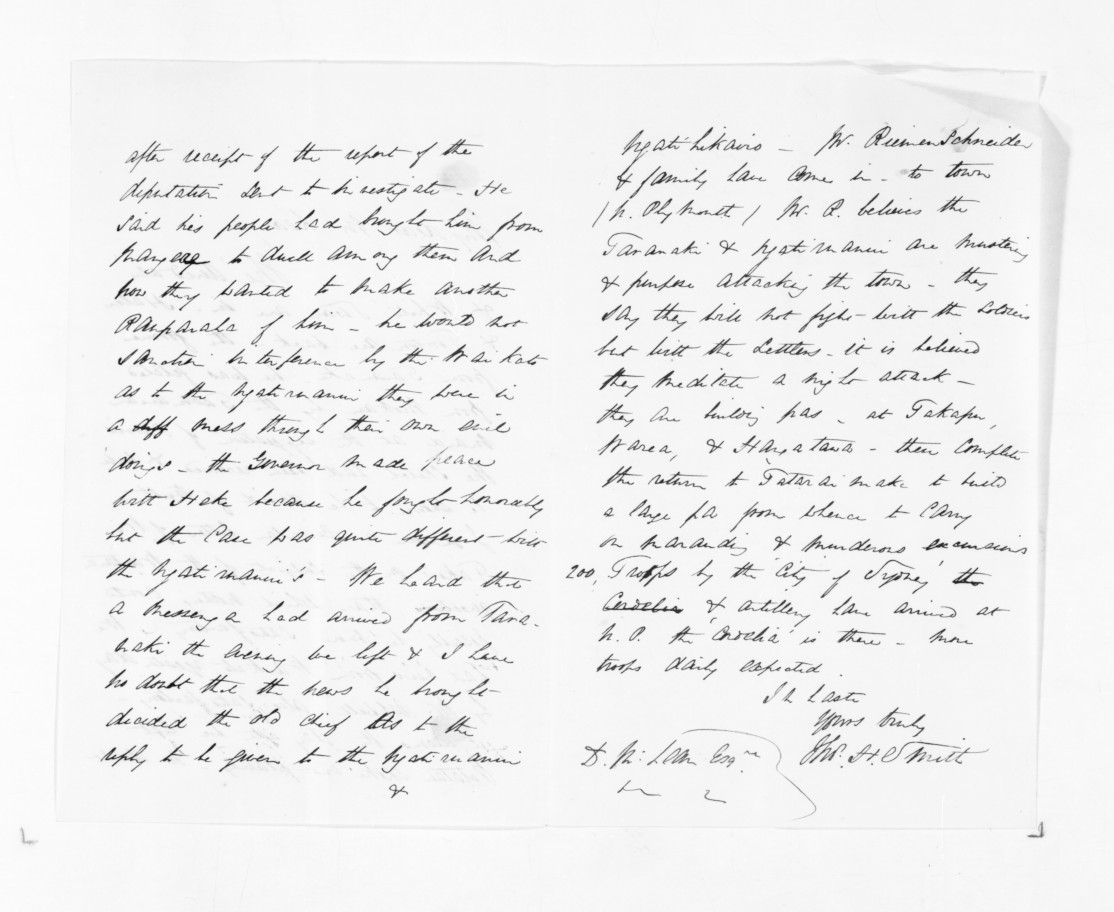 after receipt of the report of the
deputation sent to investigate - He
said his people had brought him from
Mangere to dwell among them and
now they wanted to make another
Rauparaha of him - he would not
sanction interference by the Waikato
as to the Ngatimaniu they were in
a diff mess through their own evil
doings - the Governor made peace
with Heke because he fought honorably
but the case was quite different with
the Ngatimaniu's - We heard that
a messenger had arrived from Tara-
naki the evening we left & I have
no doubt that the news he brought
decided the old chief as to the
reply to be given to the Ngatimaniu
&
Ngatihikairo - Mr. Riemenschneider
& family have come in - to town
(N. Plymouth) Mr. R. believes the
Taranaki & Ngatimaniu are mustering
& purpose attacking the town - they
say they will not fight with the soldiers
but with the settlers - it is believed
they meditate a night attack -
they are building pas, at Takapu,
Warea, & - then complete
the return to Tataraimaka to build
a large pa from whence to carry
on marauding & murderous excursions
200, Troops by the 'City of Sydney' the
Cordelia & artillery have arrived at
N. P. the 'Cordelia' is there - more
troops daily expected.
In haste
Yours truly
Jno. H. Smith
D. McLean Esqre